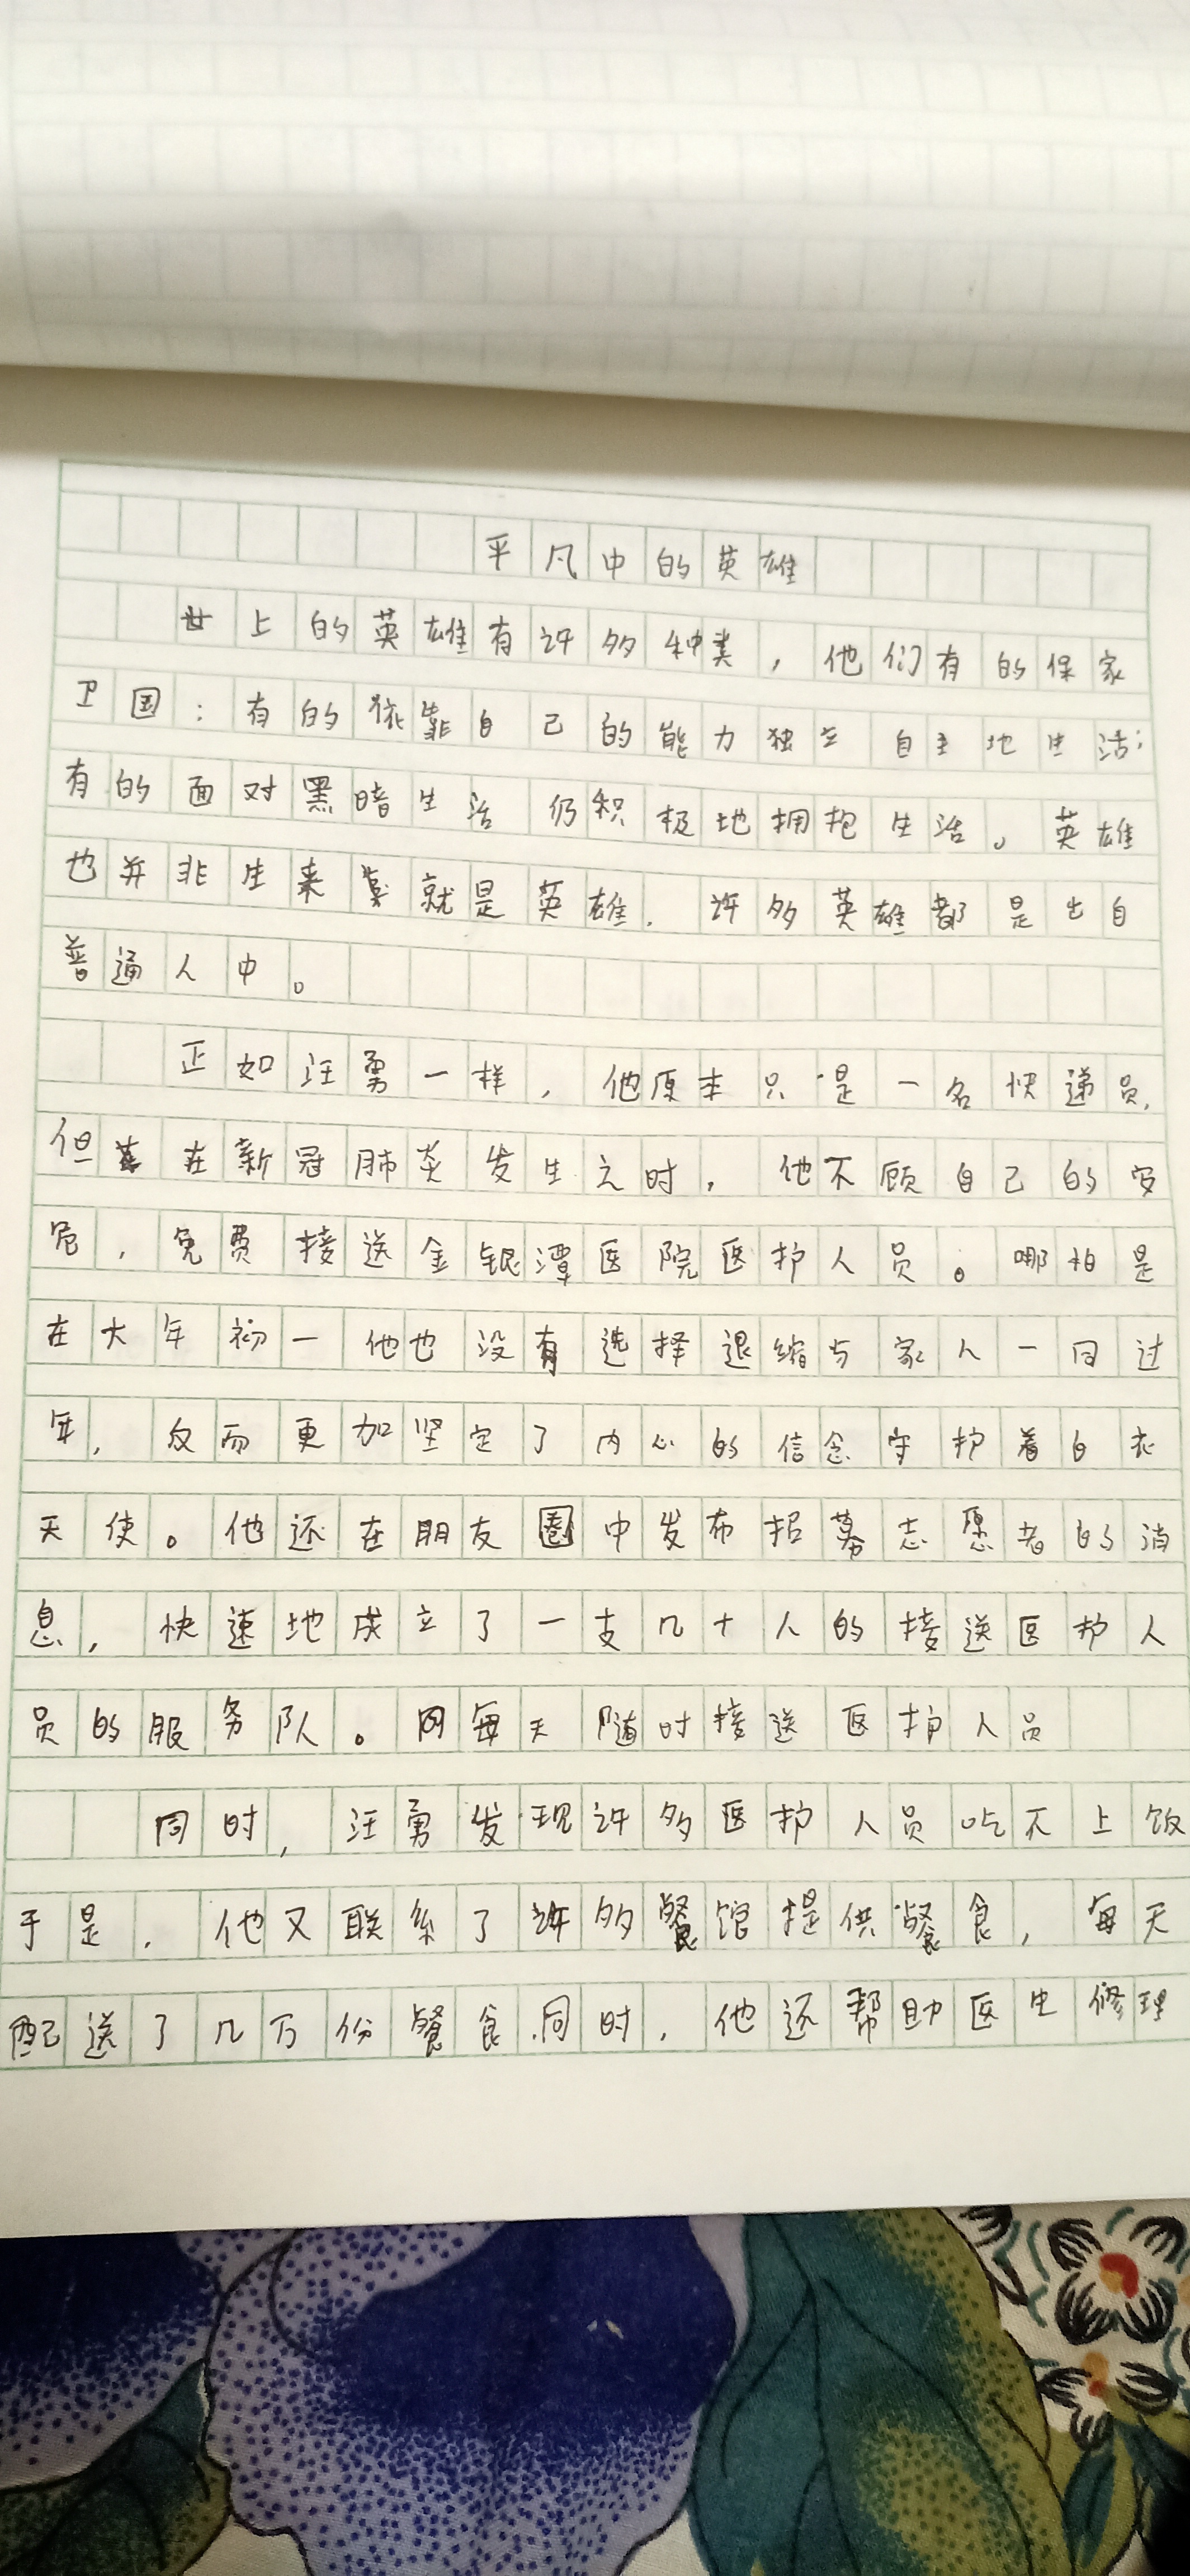 平凡中的英雄
世上的英雄有许多种类，他们有的保家
卫国；有的依靠自己的能力独立自主地生活；
有的面对黑暗生活仍积极地拥抱生活。英雄
也并非生来就是英雄，许多英雄都是出自
普通人中。
正如汪勇一样，他原本只是一名快递员，
但在新冠肺炎发生之时，他不顾自己的安
危，免费接送金银潭医院医护人员。哪怕是
在大年初一他也没有选择退缩与家人一同过
年，反而更加坚定了内心的信念守护着白衣
天使。他还在朋友圈中发布招募志愿者的消
息，快速地成立了一支几十人的接送医护人
员的服务队。网每天随时接送医护人员
同时，汪勇发现许多医护人员吃不上饭
于是，他又联系了许多餐馆提供餐食，每天
配送了几万份餐食.同时，他还帮助医生修理